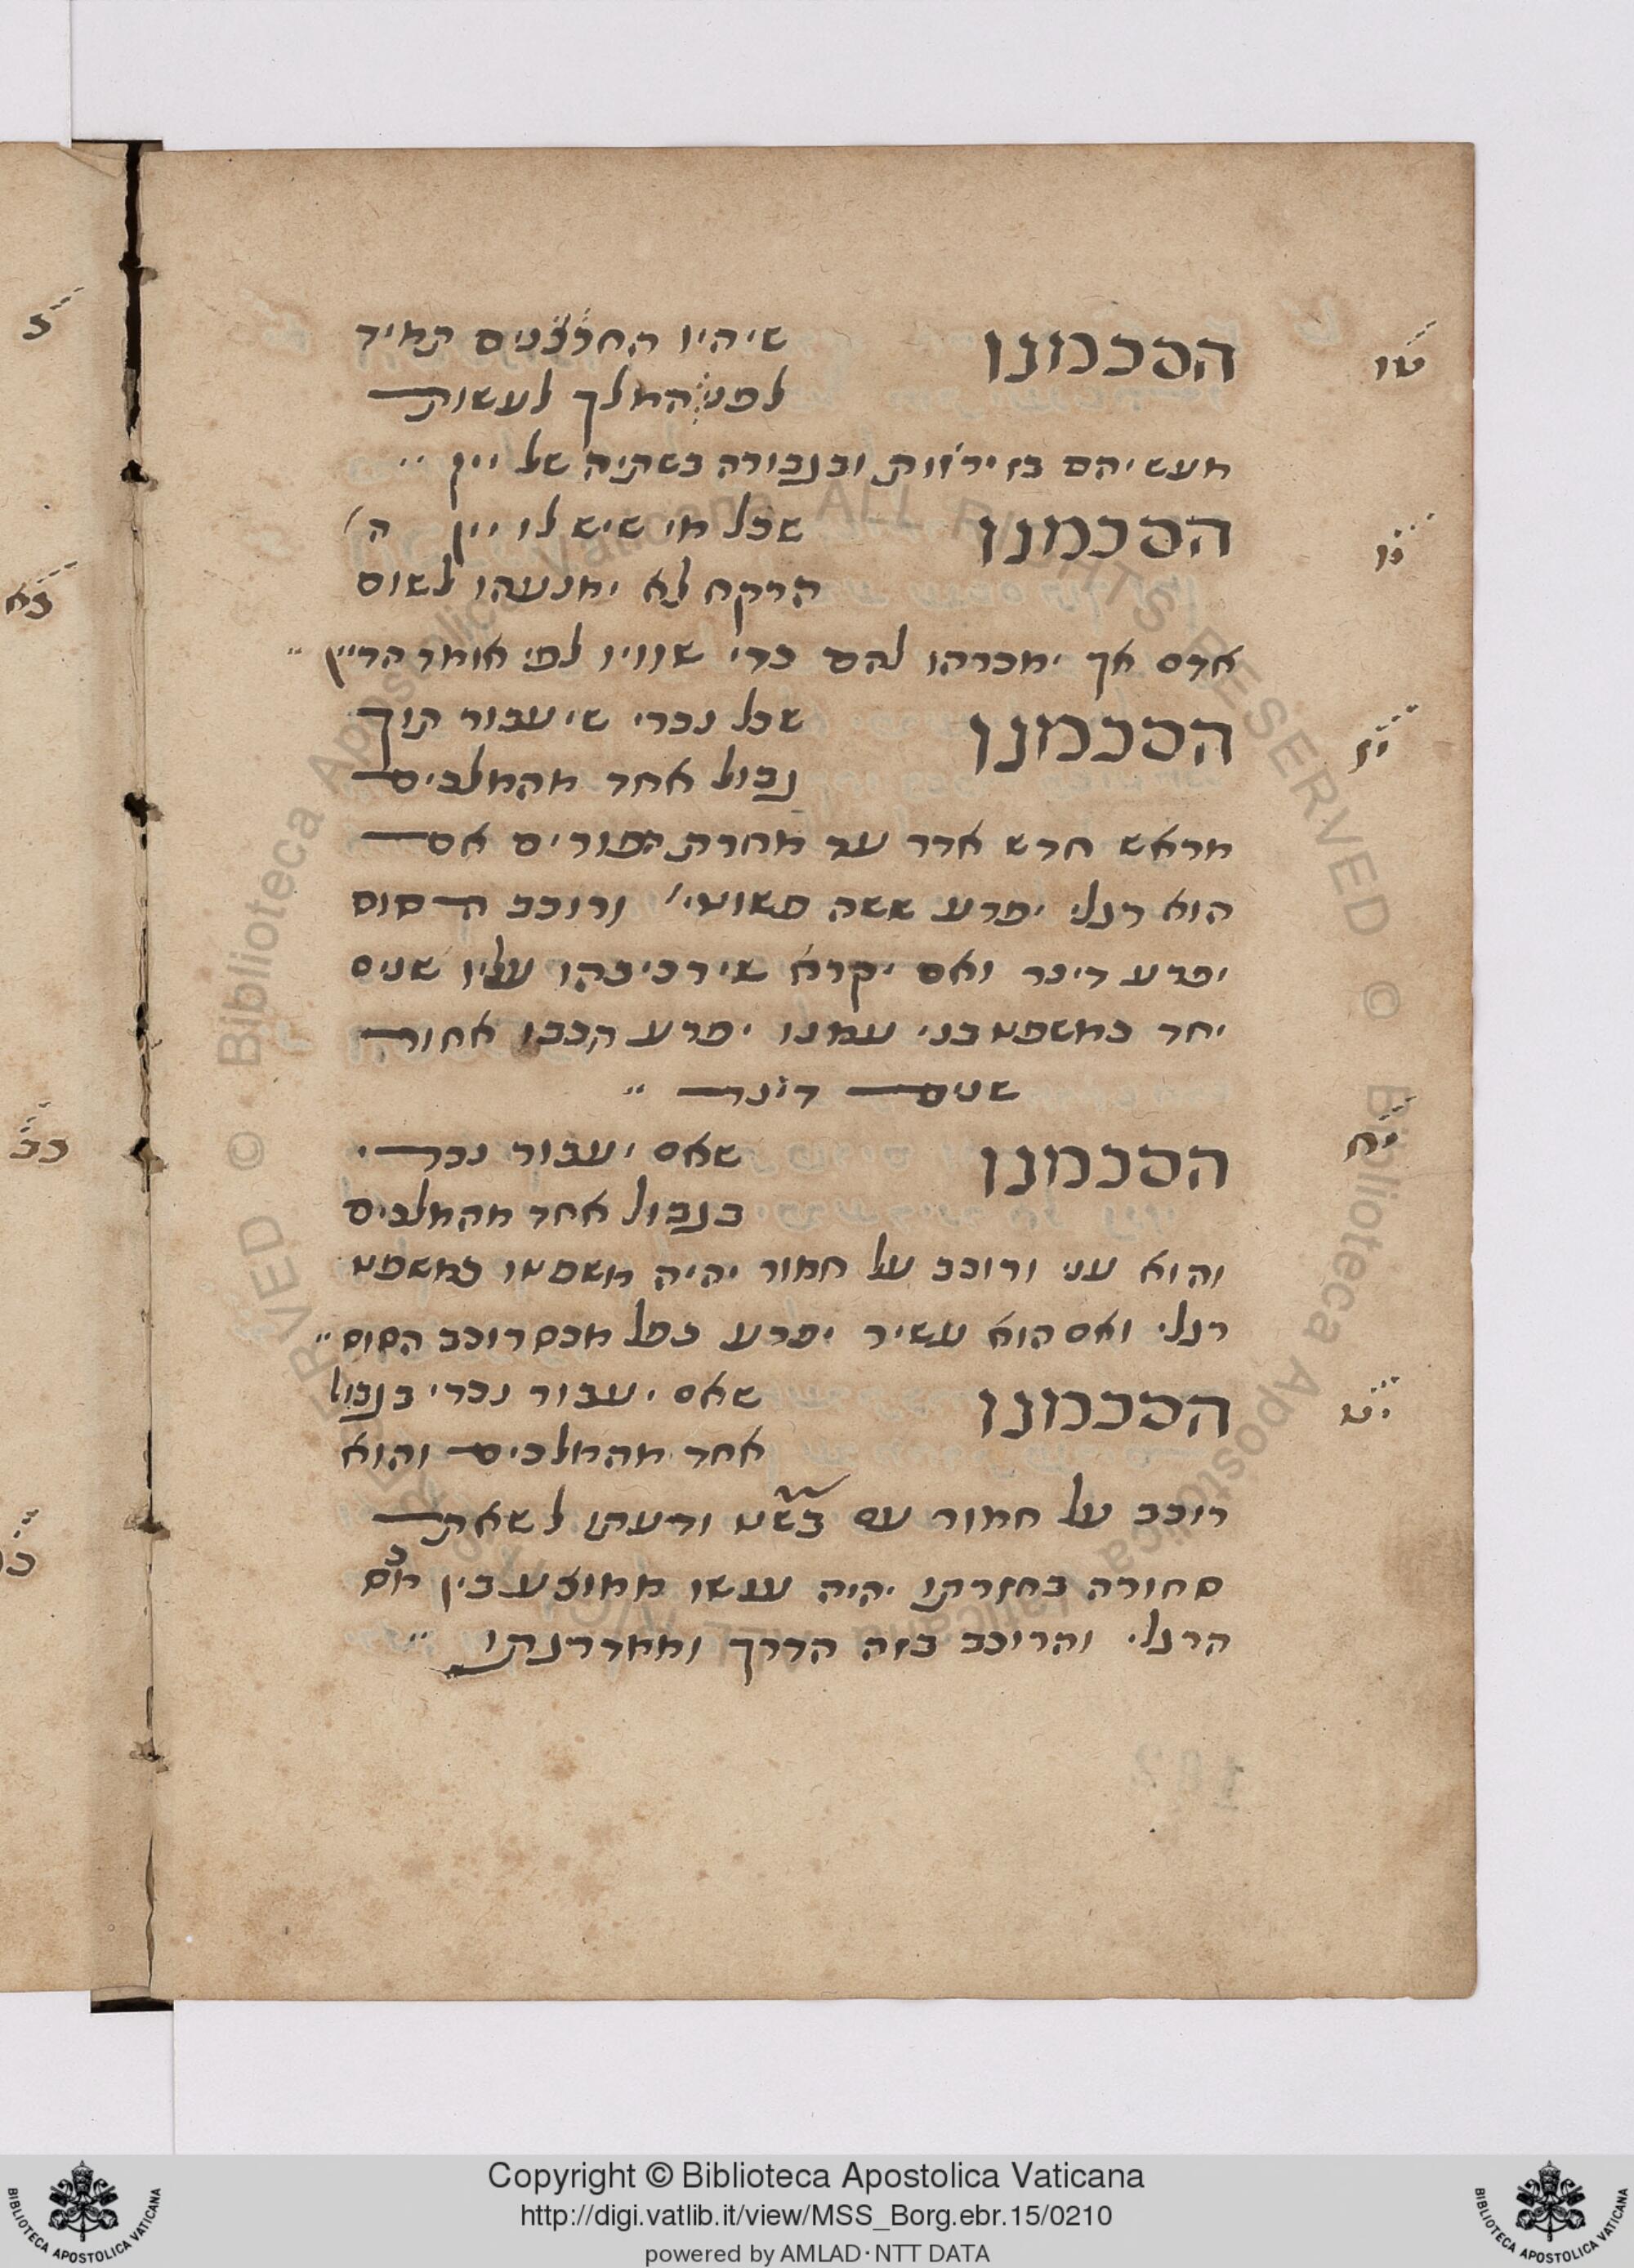 טו
הסכמנו שיהיו החרצנים תמיד
לפני המלך לעשות
מעשיהם בזריזות ובגבורה בשתיה של יין
יו
הסכמנו שכל מי שיש לו יין ה׳
הרקח לא ימנעהו לשום
אדם אך ימכרהו להם כדי שוויו לפי אומד הדיין
יז
הסכמנו שכל נכרי שיעבור תוך
גבול אחד מהמלכים
מראש חדש אדר עד מחרת הפורים אם
הוא רגלי יפרע ששה פשוטי׳ ורוכב הסוס
יפרע דינר ואם יקרא שירכיבהו עליו שנים
יחד כמשפט בני עמנו יפרע רוכבו אחור
שנים דינר
יח
הסכמנו שאם יעבור נכרי
בגבול אחד מהמלכים
והוא עני ורוכב על חמור יהיה משפטו כמשפט
רגלי ואם הוא עשיר יפרע כפל מכס רוכב הסוס
יט
הסכמנו שאם יעבור נכרי בגבול
אחד מהמלכים והוא
רוכב על חמור עם ודעתו לשאת
סחורה בחזרתו יהיה ענשו ממוצע בין מכס
הרגלי והרוכב בזה הדרך וממדרגתו
כ
כא
כב
Copyright © Biblioteca Apostolica Vaticana
http://digi.vatlib.it/view/MSS_Borg.ebr.15/0210
powered by AMLAD·NTT DATA